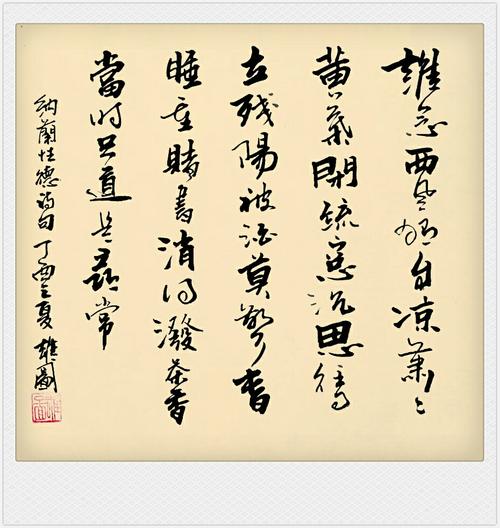 誰念西風獨自凉蕭〻
黄葉閉疏窓沉思往事
立残陽被酒莫驚春
睡重賭書消得潑茶香
當时只道是尋常
納蘭性德詩句 丁酉之夏 雄圖